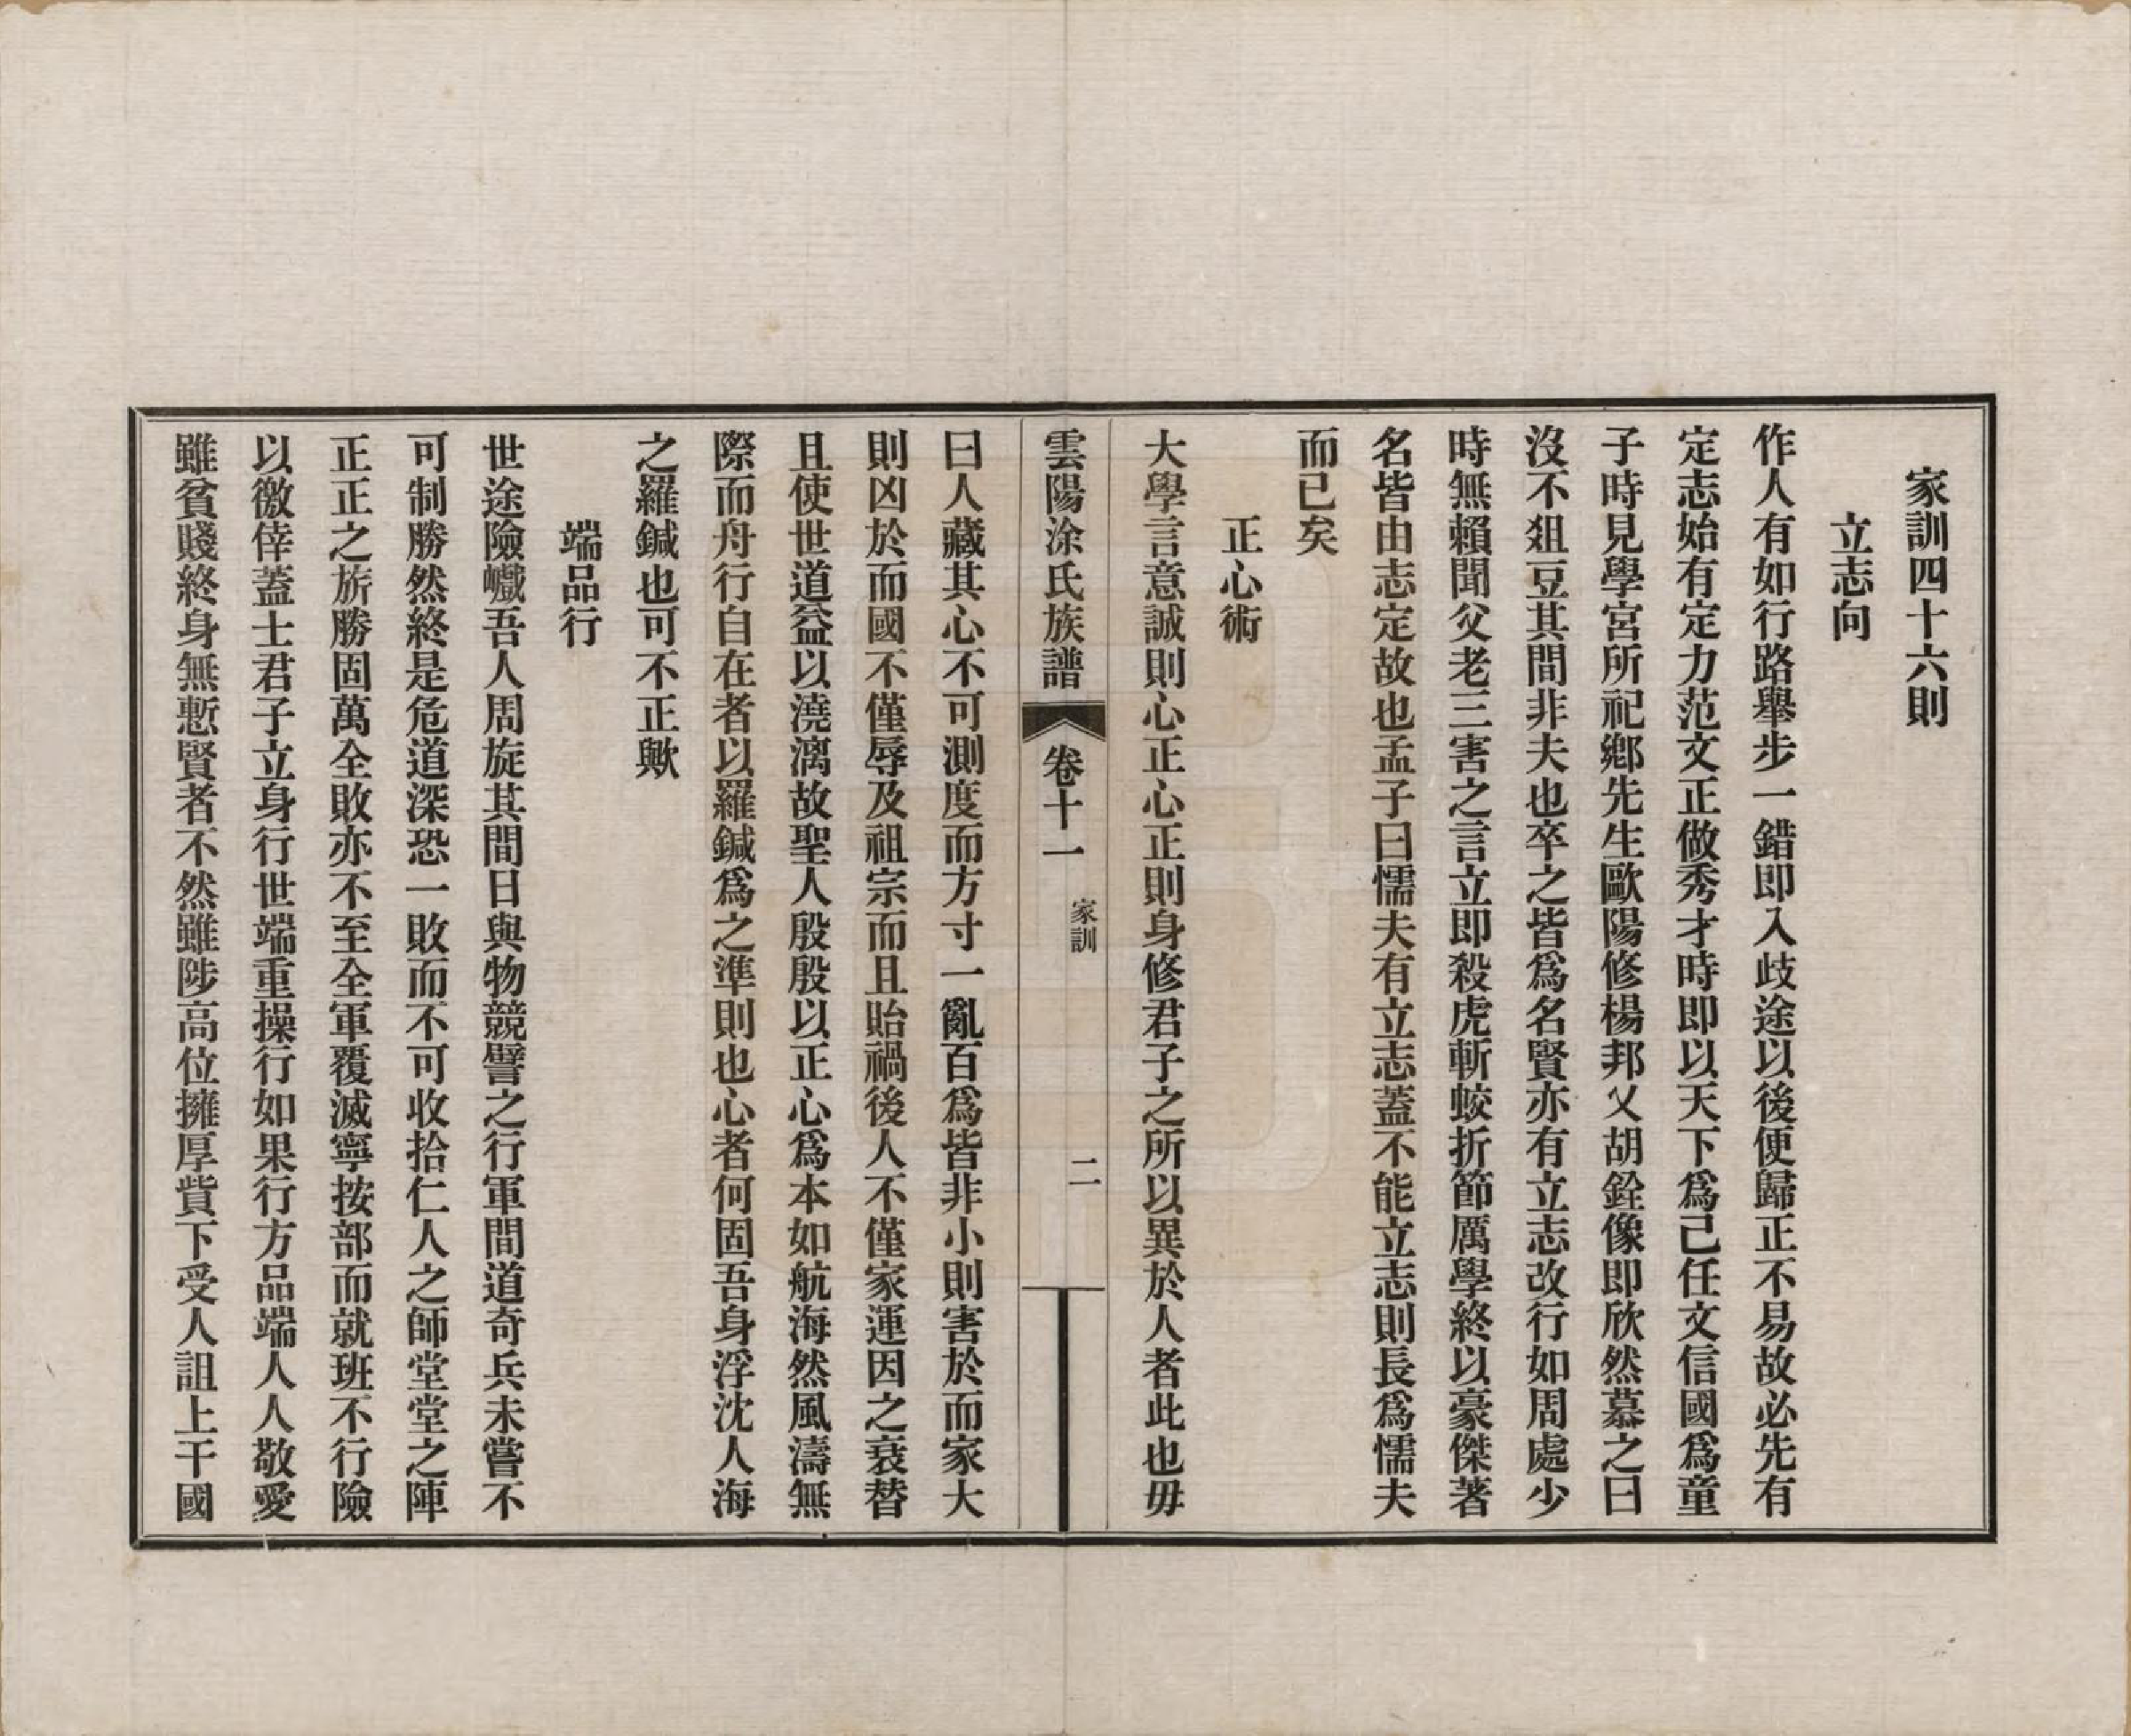 家訓四十六則
立志向
作人有如行路舉步一錯即入歧途以後便歸正不易故必先有
定志始有定力范文正做秀才時即以天下爲己任文信國爲童
子時見學宮所祀鄉先生歐陽修楊邦乂胡銓像即欣然慕之曰
沒不俎豆其間非夫也卒之皆爲名賢亦有立志改行如周處少
時無賴聞父老三害之言立即殺虎斬蛟折節厲學終以豪傑著
名皆由志定故也孟子曰懦夫有立志蓋不能立志則長爲懦夫
而已矣
正心術
大學言意誠則心正心正則身修君子之所以異於人者此也毋
雲陽涂氏族譜 卷十一 家訓 二
曰人藏其心不可測度而方寸一亂百爲皆非小則害於而家大
則凶於而國不僅辱及祖宗而且貽禍後人不僅家運因之衰替
且使世道益以澆漓故聖人殷殷以正心爲本如航海然風濤無
際而舟行自在者以羅鍼爲之準則也心者何固吾身浮沈人海
之羅鍼也可不正歟
端品行
世途險巇吾人周旋其間日與物競譬之行軍間道奇兵未嘗不
可制勝然終是危道深恐一敗而不可收拾仁人之師堂堂之陣
正正之旂勝固萬全敗亦不至全軍覆滅寧按部而就班不行險
以徼倖蓋士君子立身行世端重操行如果行方品端人人敬愛
雖貧賤終身無慙賢者不然雖陟高位擁厚貲下受人詛上干國